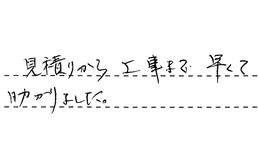 見積りから工事まで早くて
助かりました。